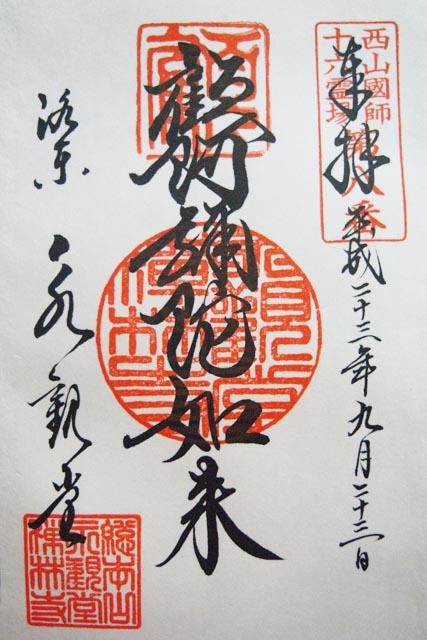 西山國師
十六霊場
奉拝
平成二十三年九月二十三日
顧阿彌陀如来
洛東
永觀堂
總本山
永觀堂
禪林寺